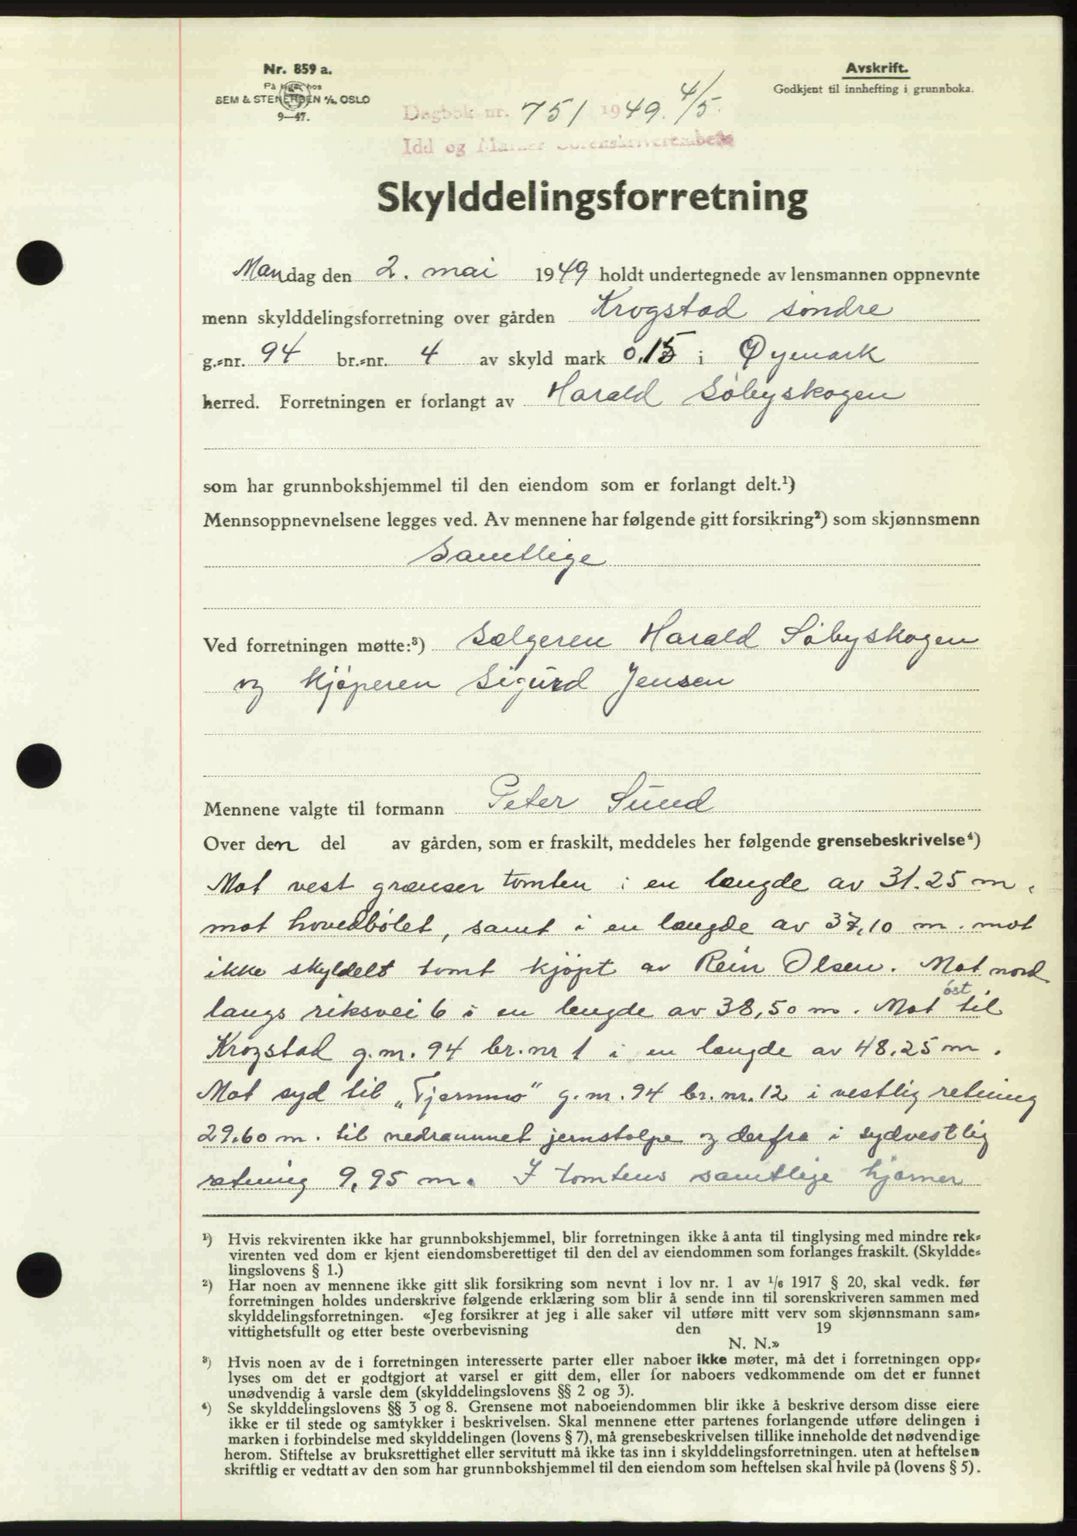 Nr. 859 a.
På lager hos
SEM & STENERSEN A/S, OSLO
9—47.
Avskrift.
Godkjent til innhefting i grunnboka.
Dagbok nr. 751 1949. 4/5.
Idd og Marker Sorenskriverembete
Skylddelingsforretning
Mandag den 2. mai 1949 holdt undertegnede av lensmannen oppnevnte
menn skylddelingsforretning over gården Krogstad söndre
g.-nr. 94 br.-nr. 4 av skyld mark 0,15 i Øymark
herred. Forretningen er forlangt av Harald Söbyskogen
som har grunnbokshjemmel til den eiendom som er forlangt delt.¹)
Mennsoppnevnelsene legges ved. Av mennene har følgende gitt forsikring²) som skjønnsmenn
Samtlige
Ved forretningen møtte:³) Sælgeren Harald Söbyskogen
og kjöperen Sigurd Jensen
Mennene valgte til formann Peter Sund
Over den del av gården, som er fraskilt, meddeles her følgende grensebeskrivelse⁴)
Mot vest grænser tomten i en længde av 31.25 m.
mot hovedbölet, samt i en længde av 37,10 m. mot
ikke skyldelt tomt kjöpt av Rein Olsen. Mot nord
langs riksvei 6 i en lengde av 38,50 m. Mot öst til
Krogstad g.nr. 94 br.nr 1 i en længde av 48,25 m.
Mot syd til „Fjernmo" g.nr. 94 br.nr. 12 i vestlig retning
29.60 m. til nedrammet jernstolpe og derfra i sydvestlig
retning 9,95 m. I tomtens samtlige hjørner
¹) Hvis rekvirenten ikke har grunnbokshjemmel, blir forretningen ikke å anta til tinglysing med mindre rek-
virenten ved dom er kjent eiendomsberettiget til den del av eiendommen som forlanges fraskilt. (Skyldde-
lingslovens § 1.)
²) Har noen av mennene ikke gitt slik forsikring som nevnt i lov nr. 1 av 1/6 1917 § 20, skal vedk. før
forretningen holdes underskrive følgende erklæring som blir å sende inn til sorenskriveren sammen med
skylddelingsforretningen. «Jeg forsikrer at jeg i alle saker vil utføre mitt verv som skjønnsmann sam-
vittighetsfullt og etter beste overbevisning den 19
N. N.»
³) Hvis noen av de i forretningen interesserte parter eller naboer ikke møter, må det i forretningen opp-
lyses om det er godtgjort at varsel er gitt dem, eller for naboers vedkommende om det er funnet
unødvendig å varsle dem (skylddelingslovens §§ 2 og 3).
⁴) Se skylddelingslovens §§ 3 og 8. Grensene mot naboeiendommen blir ikke å beskrive dersom disse eiere
ikke er til stede og samtykker i beskrivelsen. Skal mennene etter partenes forlangende utføre delingen i
marken i forbindelse med skylddelingen (lovens § 7), må grensebeskrivelsen tillike inneholde det nødvendige
herom. Stiftelse av bruksrettighet eller servitutt må ikke tas inn i skylddelingsforretningen. uten at heftelsen
skriftlig er vedtatt av den som har grunnbokshjemmel til den eiendom som heftelsen skal hvile på (lovens § 5).